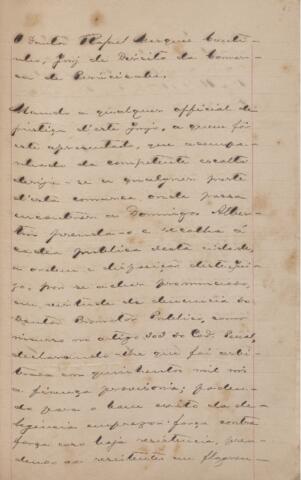 O Doutor Raphael Marques Couti-
nho, Juiz de Direito da Comar-
ca de
Mando a qualquer official de
justiça d'este Juizo, a quem fôr
este apresentado, que acompa-
nhado da competente escolta
dirija-se a qualquer parte
d'esta comarca onde possa
encontrar a Domingos Alber-
ti prenda-o e recolha á
cadea publica desta cidade,
a ordem e disposição deste Jui-
zo, por se achar pronunciado,
em virtude de denuncia do
Doutor Promotor Publico, como
incurso no artigo 303 do Cod. Penal,
declarando-lhe que foi arbi-
trada em quinhentos mil reis
a fiança provisoria; poden-
do para o bom exito da de-
ligencia empregar força contra
força caso haja resistencia, pren-
dendo os resistentes em flagran-